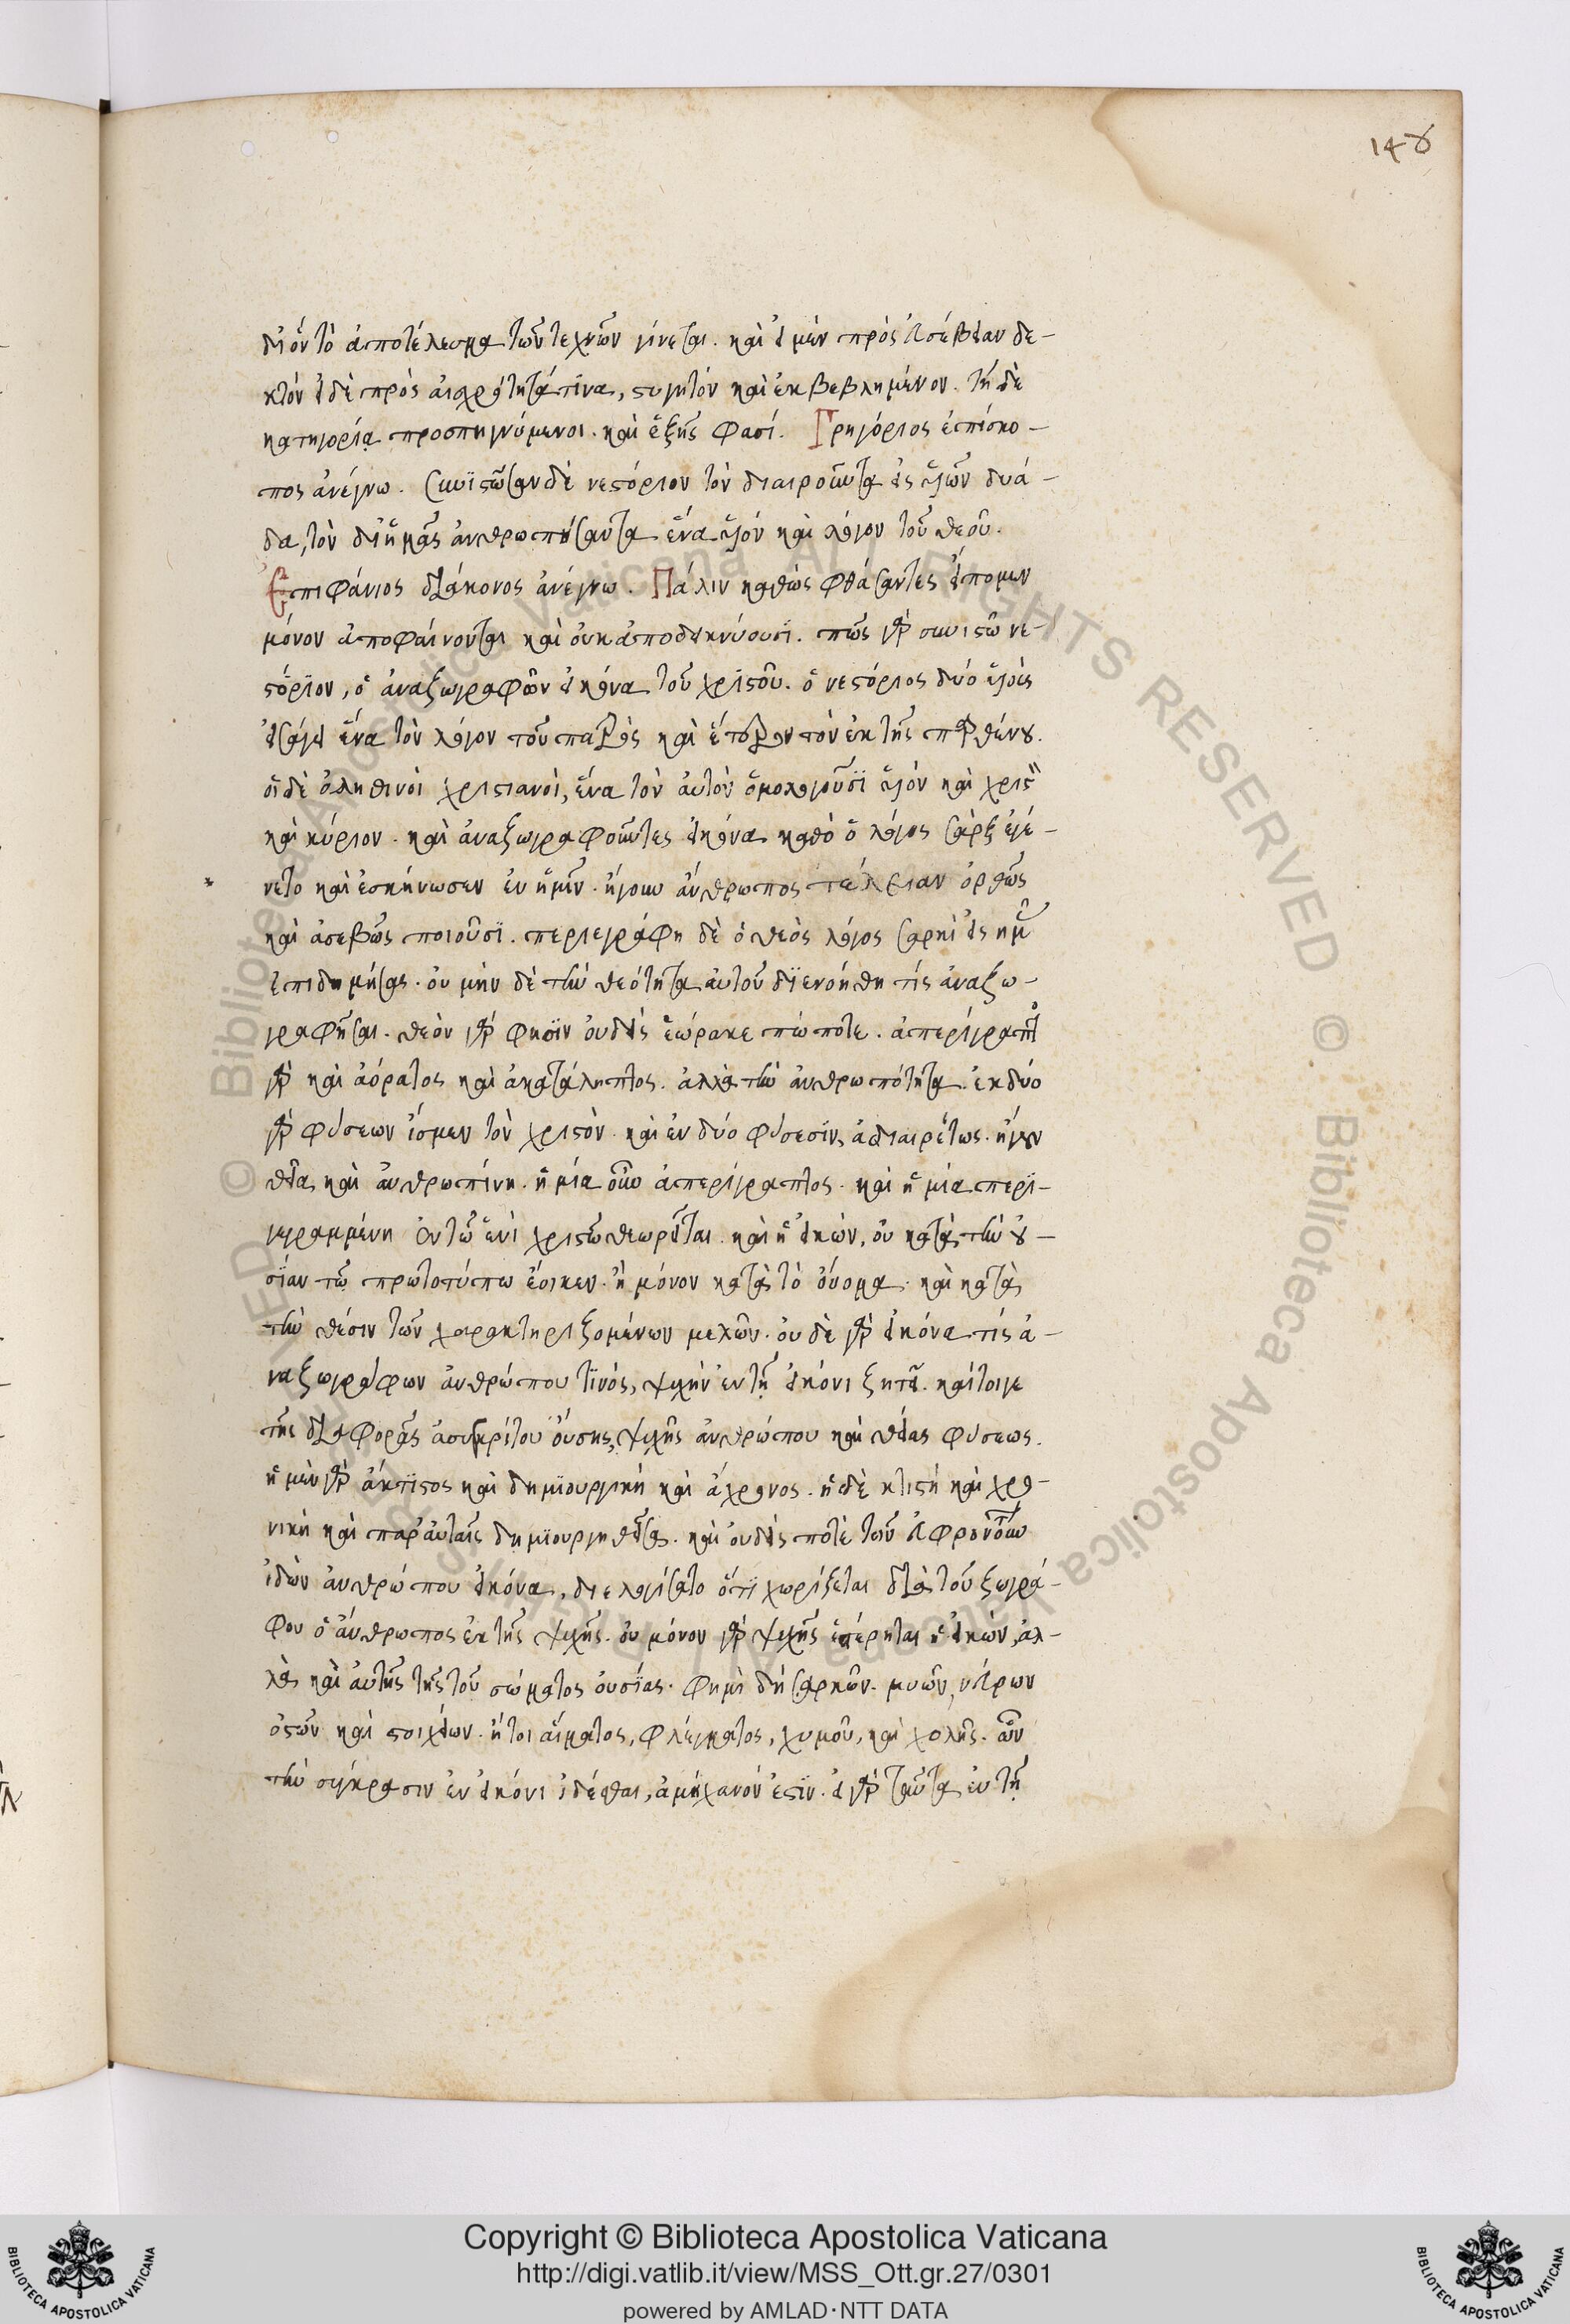 148
δι ὃν τὸ ἀποτέλεσμα τῶν τεχνῶν γίνεται. καὶ εἰ μὲν πρὸς εὐσέβειαν δε-
κτόν εἰ δὲ πρὸς αἰσχρότητά τινα, στυγητόν καὶ ἐκβεβλημένον. τῇ δὲ
κατηγορίᾳ προσπηγνύμενοι. καὶ ἑξῆς φασί. Γρηγόριος ἐπίσκο-
πος ἀνέγνω. Συνιστῶσαν δὲ νεστόριον τὸν διαιροῦντα εἰς υἱῶν δυά-
δα, τὸν δι ἡμᾶς ἀνθρωπήσαντα ἕνα υἱόν καὶ λόγον τοῦ θεοῦ.
Ἐπιφάνιος διάκονος ἀνέγνω. Πάλιν καθὼς φθάσαντες εἴπομεν
μόνον ἀποφαίνονται καὶ οὐκ ἀποδεικνύουσι. πῶς γὰρ συνιστῶ νε-
στόριον, ὁ ἀναζωγραφῶν εἰκόνα τοῦ χριστοῦ. ὁ νεστόριος δύο υἱοὺς
εἰσάγει ἕνα τὸν λόγον τοῦ πατρὸς καὶ ἕτερον τὸν ἐκ τῆς παρθένου.
οἱ δὲ ἀληθινοὶ χριστιανοὶ, ἕνα τὸν αὐτὸν ὁμολογοῦσι υἱὸν καὶ χριστ
καὶ κύριον. καὶ ἀναζωγραφοῦντες εἰκόνα καθὸ ὁ λόγος σὰρξ ἐγέ-
νετο καὶ ἐσκήνωσεν ἐν ἡμῖν. ἤγουν ἄνθρωπος τέλειαν ὀρθῶς
καὶ ἀσεβῶς ποιοῦσι. περιεγράφη δὲ ὁ θεὸς λόγος σαρκὶ εἰς ημῖ
ἐπιδημήσας. οὐ μὴν δὲ τὴν θεότητα αὐτοῦ διενοήθη τίς ἀναζω-
γραφῆσαι. θεὸν γάρ φησιν οὐδεὶς ἑώρακε πώποτε. ἀπερίγραπτ
γὰρ καὶ ἀόρατος καὶ ἀκατάληπτος. ἀλλὰ τὴν ἀνθρωπότητα. ἐκ δύο
γὰρ φύσεων ἴσμεν τὸν χριστὸν. καὶ ἐν δύο φύσεσιν, ἀδιαιρέτως. ἤγουν
θεία καὶ ἀνθρωπίνη. ἡ μία οὖν ἀπερίγραπτος. καὶ ἡ μία περι-
γεγραμμένη ἐν τῷ ἑνὶ χριστῷ θεωρεῖται. καὶ ἡ εἰκών, οὐ κατὰ τὴν οὐ-
σίαν τῷ πρωτοτύπω ἔοικεν. ἢ μόνον κατὰ τὸ ὄνομα. καὶ κατὰ
τὴν θέσιν τῶν χαρακτηριζομένων μελῶν. οὐ δὲ γὰρ εἰκόνα τίς ἀ-
ναζωγράφων ἀνθρώπου τινός, ψυχὴν ἐν τῇ εἰκόνι ζητεῖ. καίτοιγε
τῆς διαφορᾶς ἀσυγκρίτου οὔσης, ψυχῆς ἀνθρώπου καὶ θείας φύσεως.
ἡ μὲν γὰρ ἄκτιστος καὶ δημιουργικὴ καὶ ἄχρονος. ἡ δὲ κτιστὴ καὶ χρο-
νικὴ καὶ παρ αὐταῖς δημιουργηθεῖσα. καὶ οὐδείς ποτὲ τῶν εὐφρονούντων
ἰδὼν ἀνθρώπου εἰκόνα, διελογίσατο ὅτι χωρίζεται διὰ τοῦ ζωγρά-
φου ὁ ἄνθρωπος ἐκ τῆς ψυχῆς. οὐ μόνον γὰρ ψυχῆς ἐστέρηται ἡ εἰκὼν, ἀλ-
λὰ καὶ αὐτῆς τῆς τοῦ σώματος οὐσίας. φημὶ δή σαρκῶν. μυῶν, νεύρων
ὀστῶν καὶ στοιχείων. ἤτοι αἵματος, φλέγματος, χυμοῦ, καὶ χολῆς. ὧν
τὴν σύγκρασιν ἐν εἰκόνι ἰδέσθαι, ἀμήχανόν ἐστιν. εἰ γὰρ ταῦτα ἐν τῇ
© Biblioteca Apostolica Vaticana ALL RIGHTS RESERVED
Copyright © Biblioteca Apostolica Vaticana
http://digi.vatlib.it/view/MSS_Ott.gr.27/0301
powered by AMLAD·NTT DATA
BIBLIOTECA APOSTOLICA VATICANA
BIBLIOTECA APOSTOLICA VATICANA